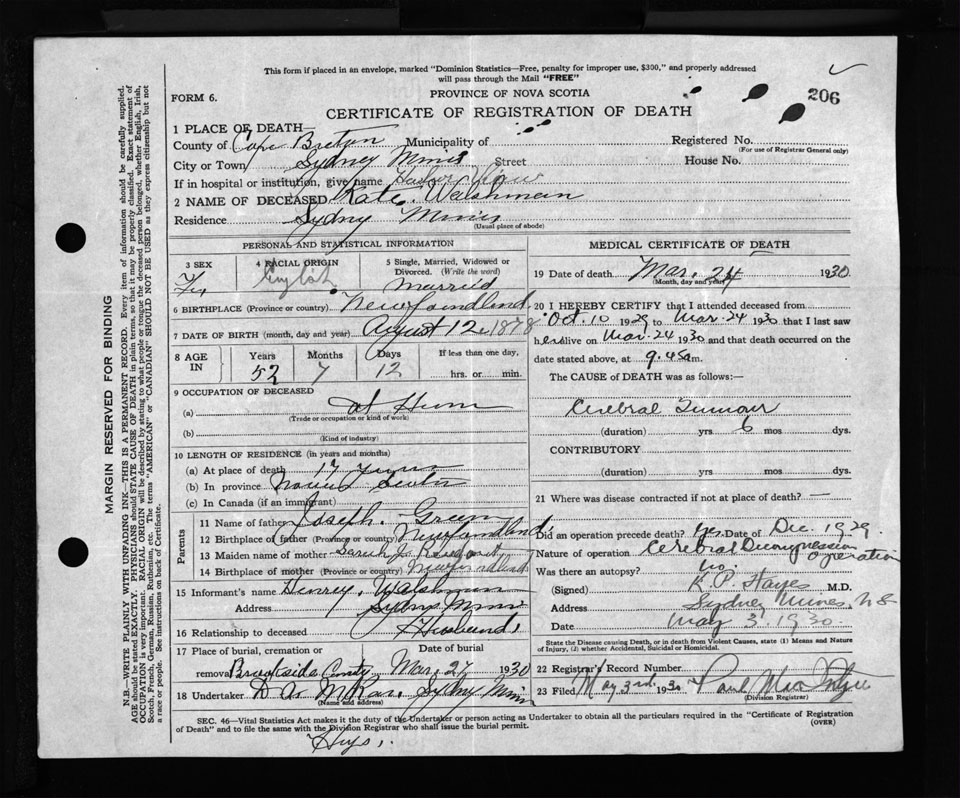 This form if placed in an envelope, marked "Dominion Statistics—Free, penalty for improper use, $300," and properly addressed
will pass through the Mail "FREE"
206
FORM 6.
PROVINCE OF NOVA SCOTIA
CERTIFICATE OF REGISTRATION OF DEATH
1 PLACE OF DEATH—
County of Cape Breton Municipality of Registered No.
(For use of Registrar General only)
City or Town Sydney Mines Street House No.
If in hospital or institution, give name Harbor View
2 NAME OF DECEASED Kate Walshman
Residence Sydney Mines
(Usual place of abode)
PERSONAL AND STATISTICAL INFORMATION
3 SEX
4 RACIAL ORIGIN
English
5 Single, Married, Widowed or
Divorced. (Write the word)
married
6 BIRTHPLACE (Province or country) Newfoundland
7 DATE OF BIRTH (month, day and year) August 12 1878
8 AGE IN
Years Months Days If less than one day.
52 7 12 hrs. or min.
9 OCCUPATION OF DECEASED
(a) At Home
(Trade or occupation or kind of work)
(b)
(Kind of industry)
10 LENGTH OF RESIDENCE (in years and months)
(a) At place of death 17 years
(b) In province Nova Scotia
(c) In Canada (if an immigrant)
Parents
11 Name of father Joseph Green
12 Birthplace of father (Province or country) Newfoundland
13 Maiden name of mother Sarah J.
14 Birthplace of mother (Province or country) Newfoundland
15 Informant's name Henry Walshman
Address Sydney Mines
16 Relationship to deceased Husband
17 Place of burial, cremation or Date of burial
removal County Mar 27 1930
18 Undertaker Sydney Mines
(Name and address)
MEDICAL CERTIFICATE OF DEATH
19 Date of death Mar. 24 1930
(Month, day and year)
20 I HEREBY CERTIFY that I attended deceased from
Oct. 10 1929 to Mar. 24 1930 that I last saw
her alive on Mar. 24 1930 and that death occurred on the
date stated above, at 9.45 a.m.
The CAUSE OF DEATH was as follows:—
Cerebral Tumour
(duration) yrs 6 mos dys.
CONTRIBUTORY
(duration) yrs. mos. dys.
21 Where was disease contracted if not at place of death? —
Did an operation precede death? yes Date of Dec. 1929
Nature of operation Cerebral Decompression Operation
Was there an autopsy? no.
(Signed) K. P. Hayes M.D.
Address Sydney Mines NS
Date May 3. 1930.
State the Disease causing Death, or in death from Violent Causes, state (1) Means and Nature
of Injury, (2) whether Accidental, Suicidal or Homicidal.
22 Registrar's Record Number
23 Filed May 3rd 1930 Paul
(Division Registrar)
SEC. 46—Vital Statistics Act makes it the duty of the Undertaker or person acting as Undertaker to obtain all the particulars required in the "Certificate of Registration
of Death" and to file the same with the Division Registrar who shall issue the burial permit.
(OVER)
MARGIN RESERVED FOR BINDING
N.B.—WRITE PLAINLY WITH UNFADING INK—THIS IS A PERMANENT RECORD. Every item of information should be carefully supplied.
AGE should be stated EXACTLY. PHYSICIANS should STATE CAUSE OF DEATH in plain terms, so that it may be properly classified. Exact statement of
OCCUPATION is very important. RACIAL ORIGIN will be described by stating to what people or tongue the deceased person belonged, whether English, Irish,
Scotch, French, German, Russian, Ruthenian, etc. The terms "AMERICAN" or "CANADIAN" SHOULD NOT BE USED as they express citizenship but not
a race or people. See instructions on back of Certificate.